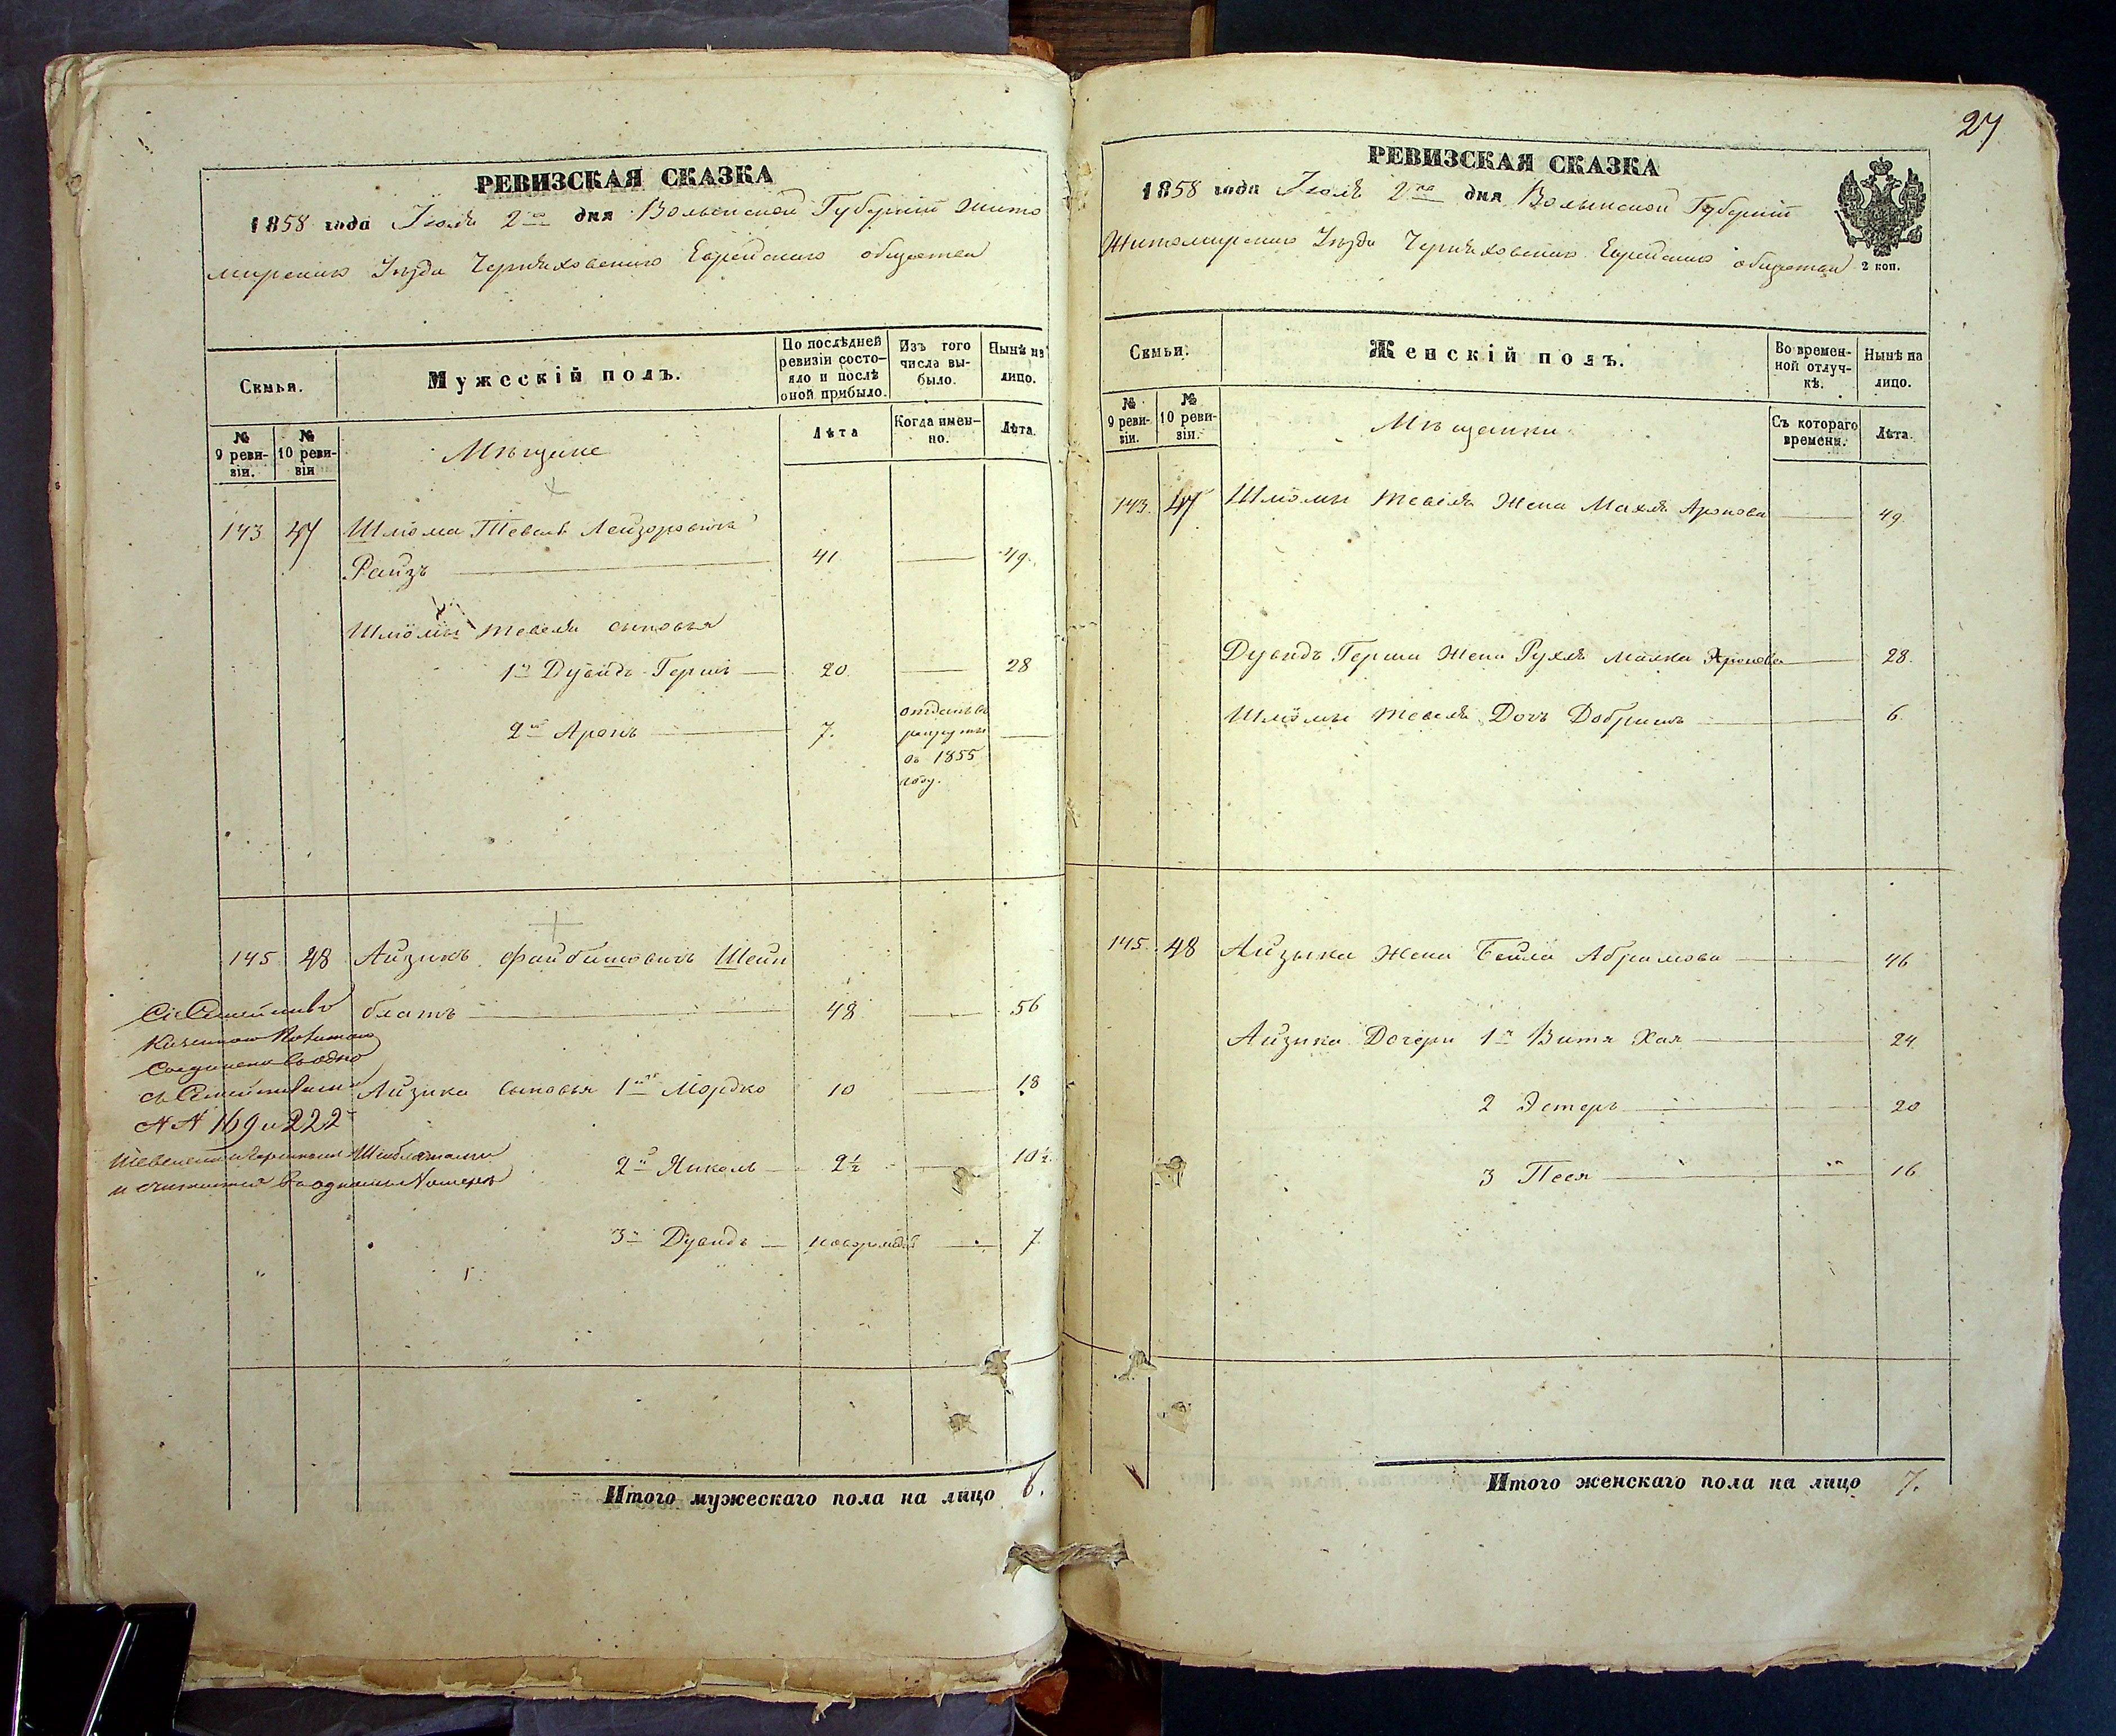 РЕВИЗСКАЯ СКАЗКА
1858 года Іюля 2го дня Волынской Губерніи Жито
мирскаго Уѣзда Черняховскаго Еврейскаго общества
Семья.
Мужескій полъ.
По послѣдней
ревизіи состо-
яло и послѣ
оной прибыло.
Изъ того
числа вы-
было.
Нынѣ на
лицо.
№
9 реви-
зіи.
№
10 реви-
зіи
Мѣщане
Лѣта
Когда имен-
но.
Лѣта.
143 47 Шлёма Тевель Лейзоровичъ
Райзъ 41 49.
Шлёмы Тевеля сыновья
1й Дувидъ Гершъ 20. 28
2й Аронъ 7.
отданъ въ
рекруты
въ 1855
году.
145 48 Айзикъ Файбишовичъ Шейн
блатъ 48 56
Айзика сыновья 1й Мордко 10 18
2й Янкель 2½ 10½
3й Дувидъ новорожден 7
Сіе Семейство
Казенною Палатою
Соединено въ одно
съ Семействами
№№ 169 и 222
и считается въ одномъ Номерѣ
Итого мужескаго пола на лицо 6.
27
РЕВИЗСКАЯ СКАЗКА
1858 года Іюля 2го дня Волынской Губерніи
Житомирскаго Уѣзда Черняховскаго Еврейскаго общества
2 коп.
Семьи.
Женскій полъ.
Во времен-
ной отлуч-
кѣ.
Нынѣ на
лицо.
№
9 реви-
зіи.
№
10 реви-
зіи.
Мѣщанки
Съ котораго
времени.
Лѣта.
143. 47 Шлёмы Тевеля Жена Махля Аронова 49.
Дувидъ Герша Жена Рухля Малка 28.
Шлёмы Тевеля Дочь Добришъ 6.
145. 48 Айзыка Жена Бейла Абрамова 46
Айзика Дочери 1я Витя Хая 24.
2 Эстеръ 20
3 Песя 16
Итого женскаго пола на лицо 7.